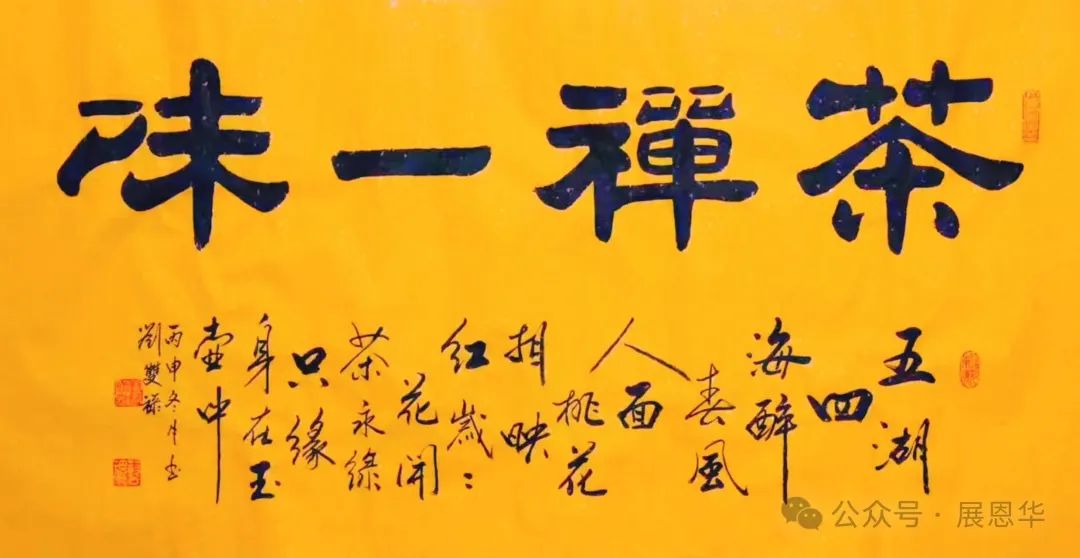 茶禪一味
五湖
四
海醉
春風
人面
桃花
相映
紅歲〻
花開
茶永綠
只緣
身在玉
壺中
丙申冬月書
劉雙祿
公众号 · 展恩华